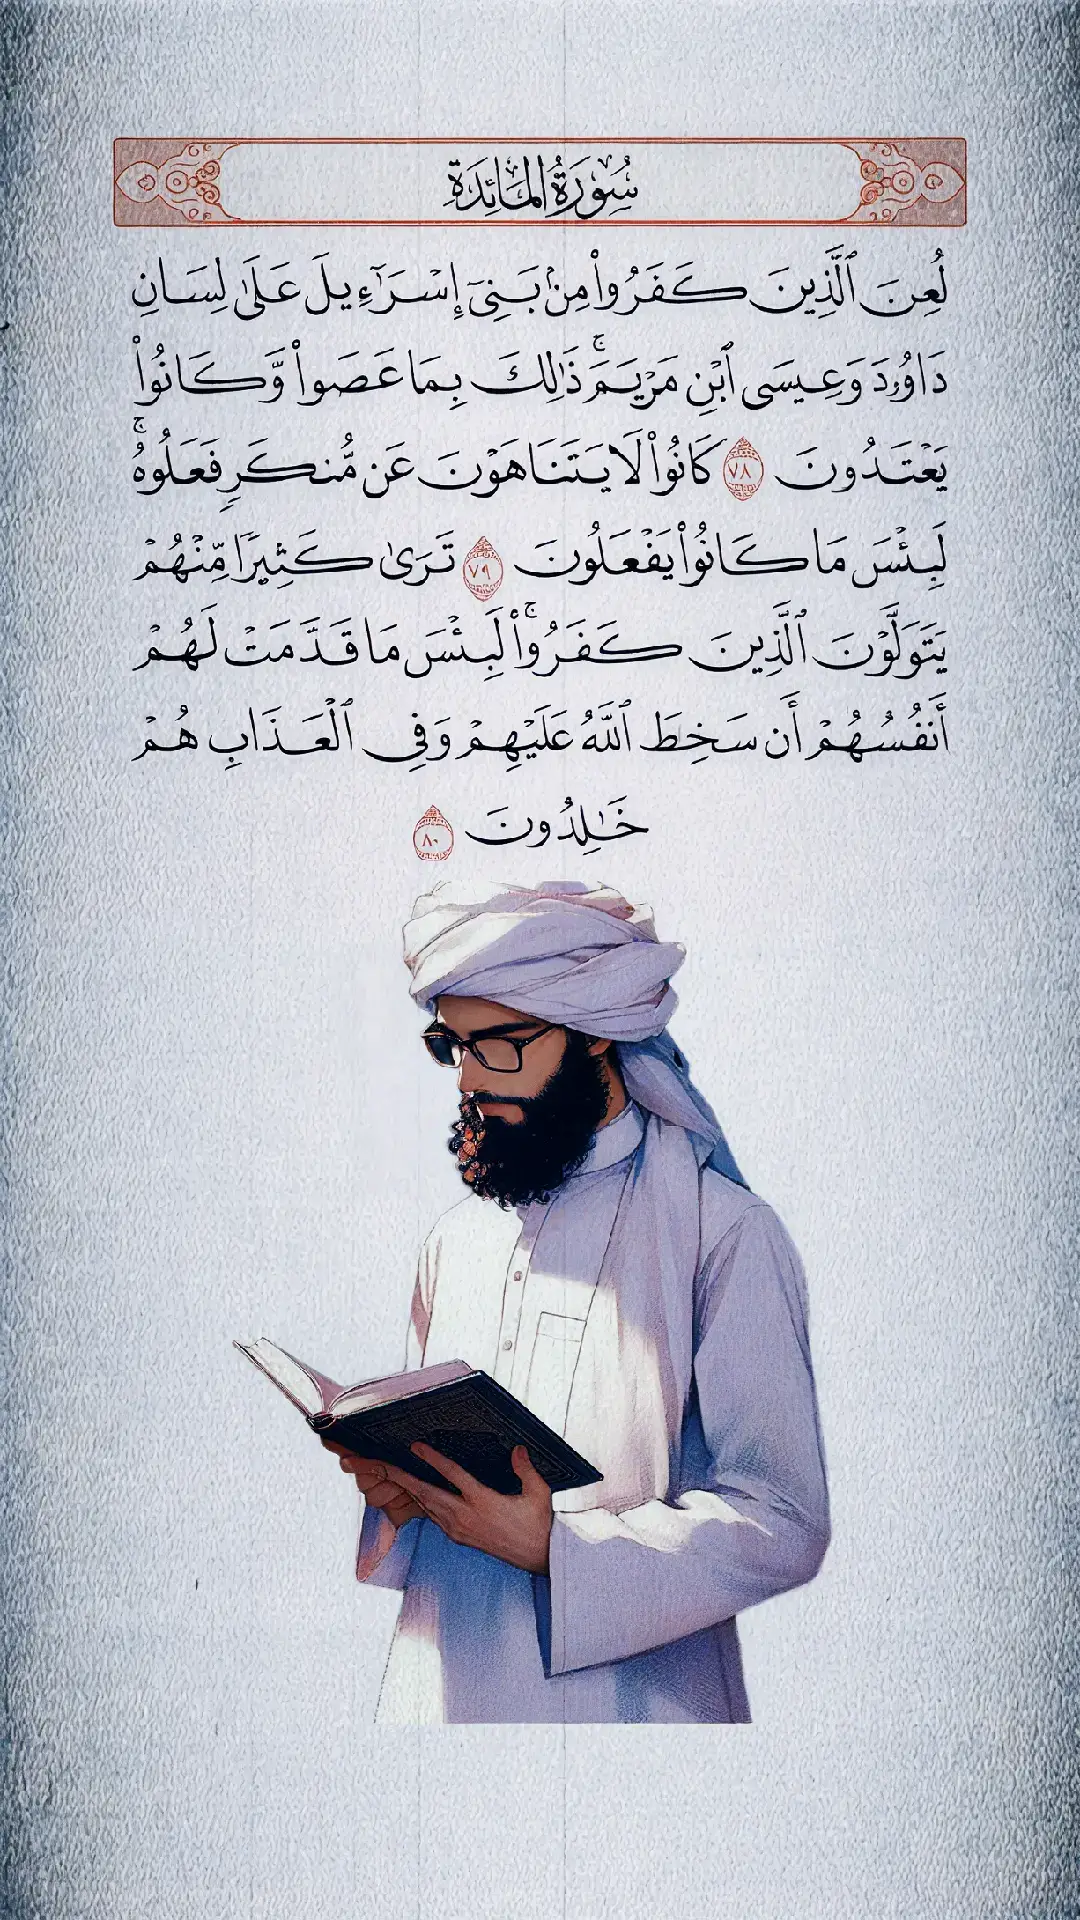 سُورَةُ المَائِدَةِ
لُعِنَ ٱلَّذِينَ كَفَرُوا۟ مِنۢ بَنِىٓ إِسْرَٰٓءِيلَ عَلَىٰ لِسَانِ
دَاوُۥدَ وَعِيسَى ٱبْنِ مَرْيَمَ ۚ ذَٰلِكَ بِمَا عَصَوا۟ وَّكَانُوا۟
يَعْتَدُونَ ٧٨ كَانُوا۟ لَا يَتَنَاهَوْنَ عَن مُّنكَرٍ فَعَلُوهُ ۚ
لَبِئْسَ مَا كَانُوا۟ يَفْعَلُونَ ٧٩ تَرَىٰ كَثِيرًا مِّنْهُمْ
يَتَوَلَّوْنَ ٱلَّذِينَ كَفَرُوا۟ ۚ لَبِئْسَ مَا قَدَّمَتْ لَهُمْ
أَنفُسُهُمْ أَن سَخِطَ ٱللَّهُ عَلَيْهِمْ وَفِى ٱلْعَذَابِ هُمْ
خَٰلِدُونَ ٨٠